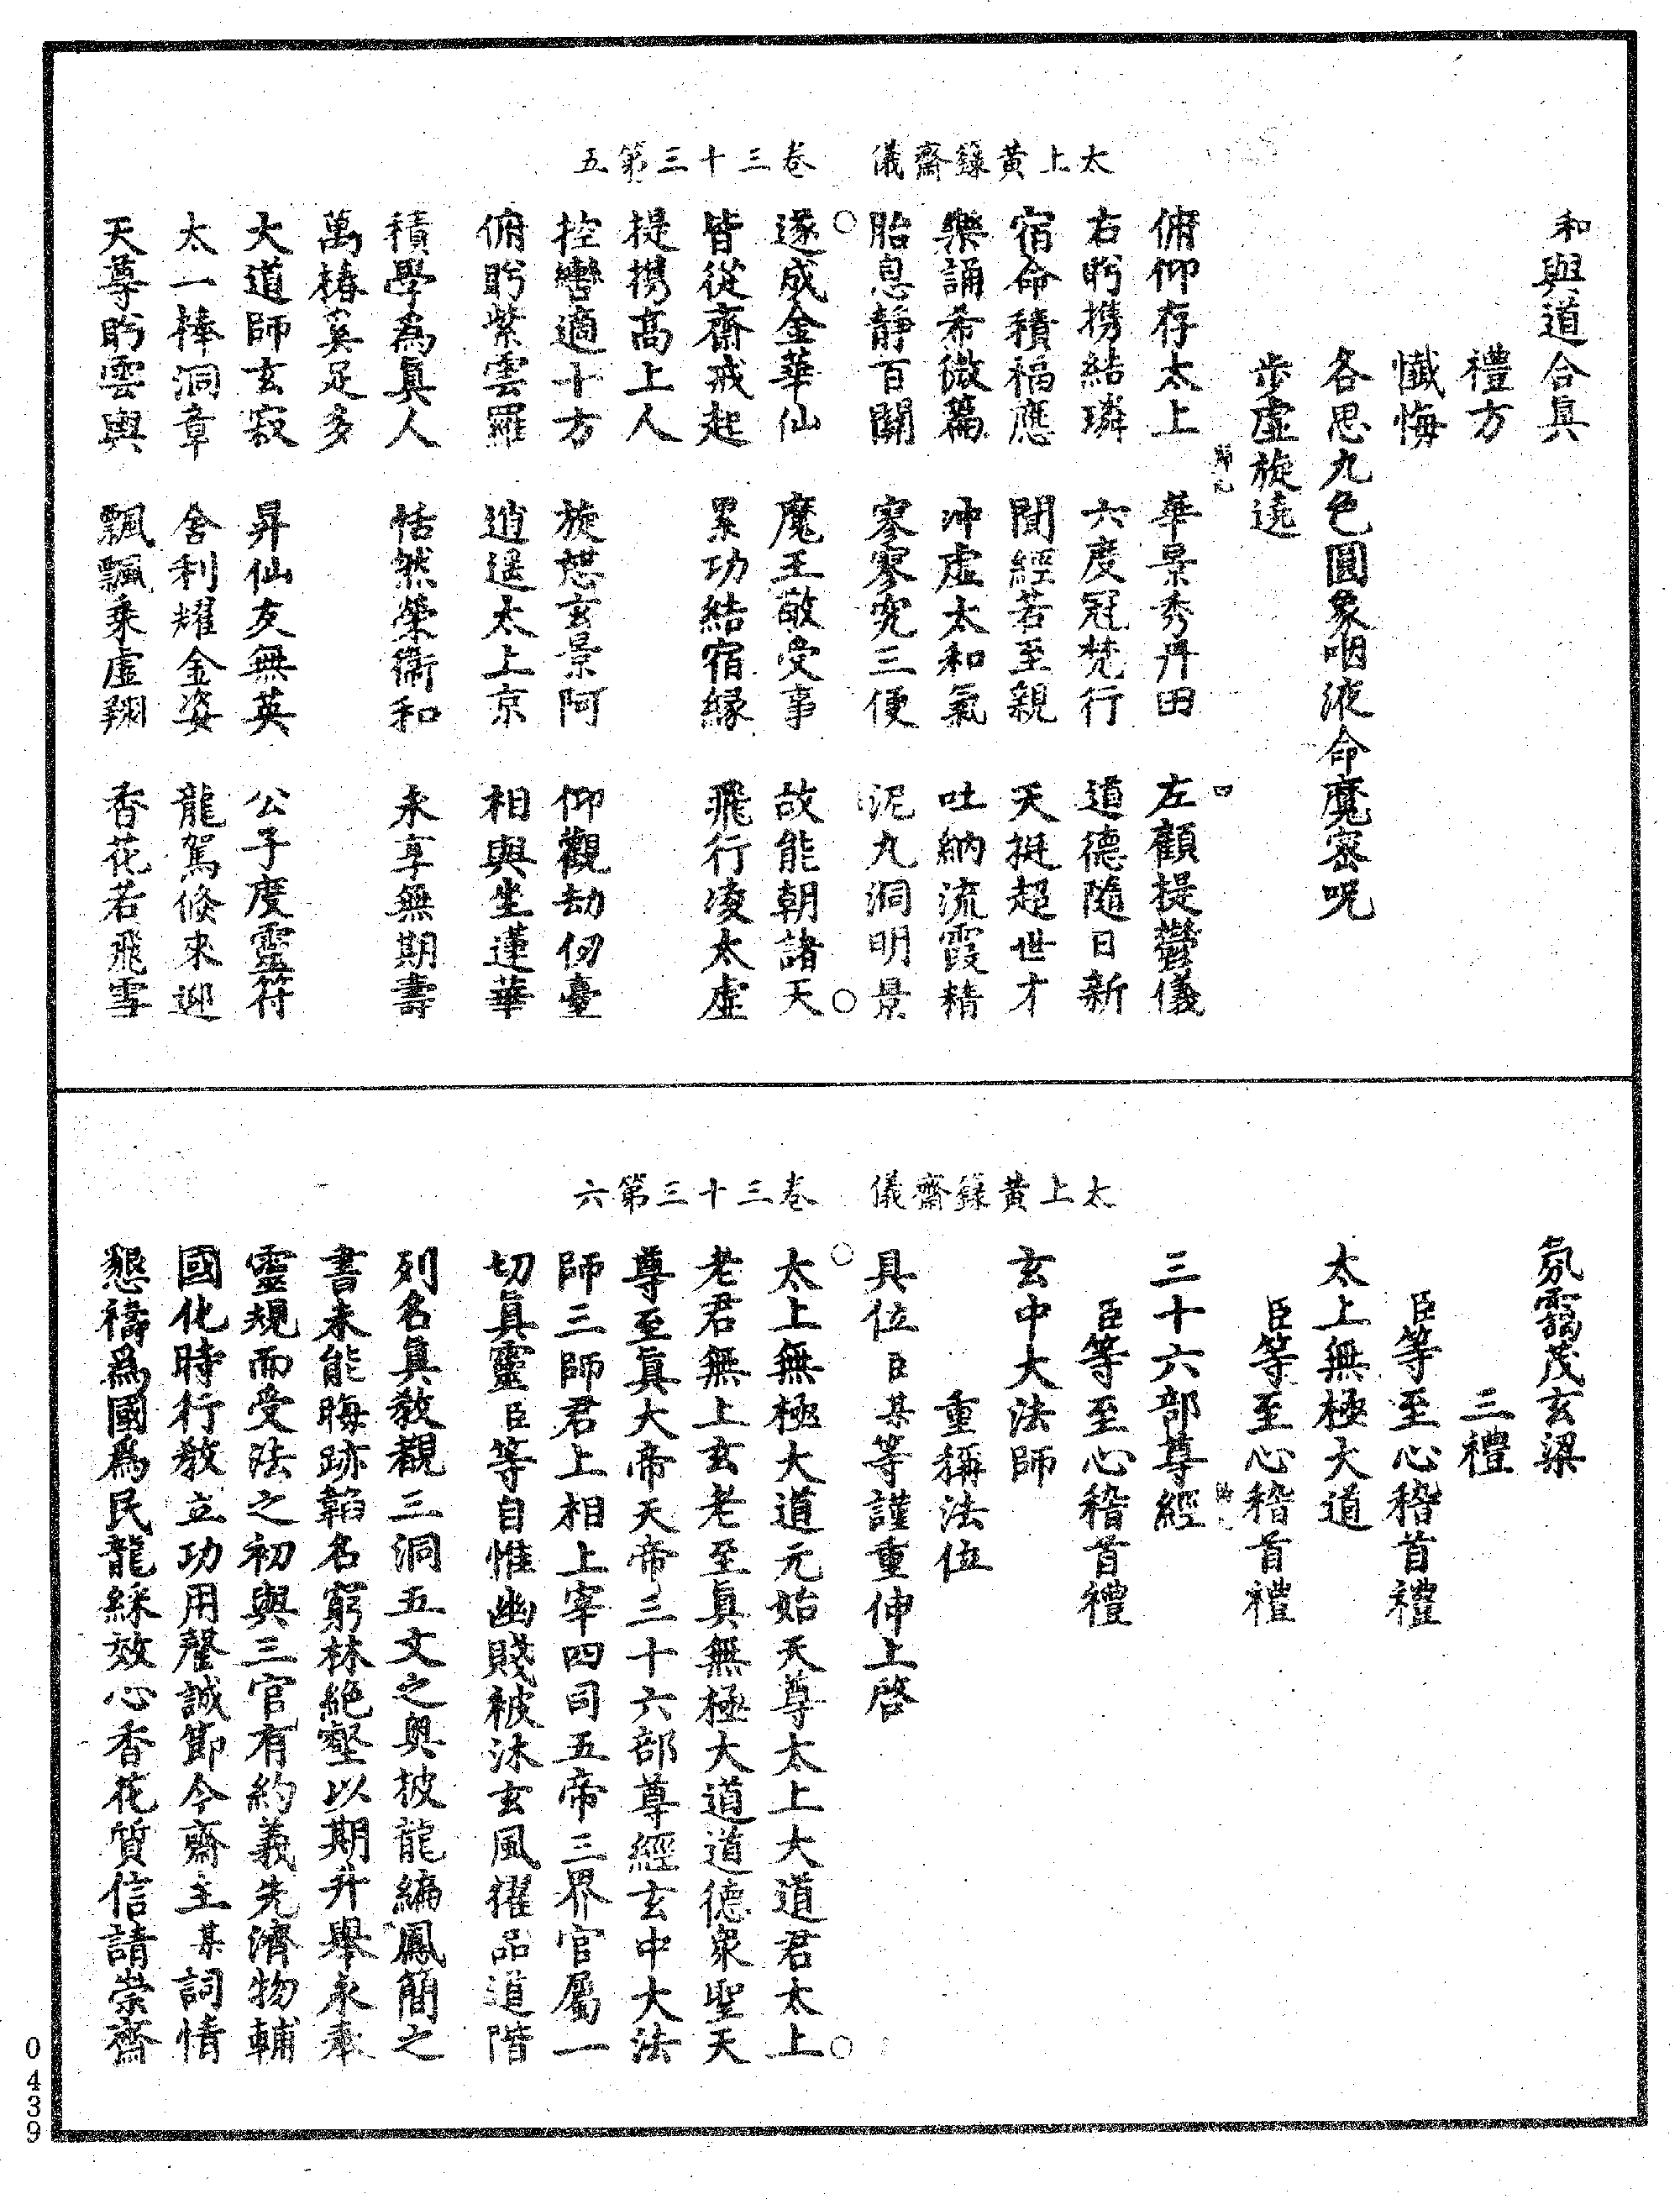 太上黃籙齋儀　卷三十三第五
和與道合真
禮方
懺悔
各思九色圓象咽液命魔密呪
步虛旋遶
俯仰存太上　華景秀丹田　左顧提鬱儀
右眄攜結璘　六度冠梵行　道德隨日新
宿命積福應　聞經若至親　天挺超世才
樂誦希微篇　冲虛太和氣　吐納流霞精
胎息靜百關　寥寥究三便　泥丸洞明景
遂成金華仙　魔王敬受事　故能朝諸天
皆從齋戒起　累功結宿緣　飛行凌太虛
提攜高上人
控轡適十方　旋憩玄景阿　仰觀劫仞臺
俯眄紫雲羅　逍遙太上京　相與坐蓮華
積學為真人　恬然榮衛和　永享無期壽
萬椿奚足多
大道師玄寂　昇仙友無英　公子度靈符
太一捧洞章　舍利耀金姿　龍駕倏來迎
天尊眄雲輿　飄飄乘虛翔　香花若飛雪
太上黃籙齋儀　卷三十三第六
氛靄茂玄梁
三禮
臣等至心稽首禮
太上無極大道
臣等至心稽首禮
三十六部尊經
臣等至心稽首禮
玄中大法師
重稱法位
具位臣某等謹重伸上啓
太上無極大道元始天尊太上大道君太上
老君無上玄老至真無極大道道德衆聖天
尊至真大帝天帝三十六部尊經玄中大法
師三師君上相上宰四司五帝三界官屬一
切真靈臣等自惟幽賤被沐玄風擢品道階
列名真教觀三洞五文之奥披龍編鳳簡之
書未能晦跡韜名窮林絕壑以期升舉永奉
靈規而受法之初與三官有約義先濟物輔
國化時行教立功用罄誠節今齋主某詞情
懇禱為國為民龍綵效心香花質信請崇齋
0439